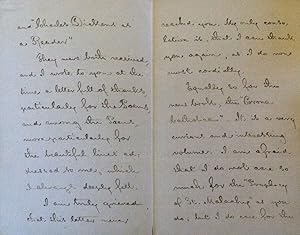 and "Charles Dickens as
a Reader."
They were both received
and I wrote to you at the
time a letter full of thanks
particularly for the Poems,
and among the Poems
more particularly for
the beautiful lines ad-
dressed to me, which
I always deeply felt.
I am truly grieved
that this letter never
reached you. My only conso-
lation is, that I can thank
you again, as I do now
most cordially.
Equally so for the
new book, the "Corona
Catholica". It is a very
curious and interesting
volume. I am afraid
that I do not care so
much for the "Prophecy
of St. Malachy" as you
do; but I do care for the